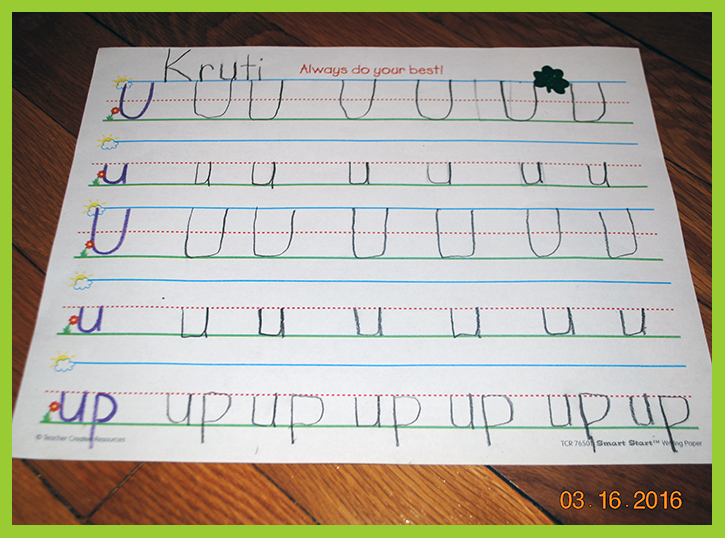 Kruti Always do your best!
U U U U U U U
u u u u u u u
U U U U U U U
u u u u u u u
up up up up up up up
© Teacher Created Resources TCR 76501 Smart Start™ Writing Paper
03.16.2016